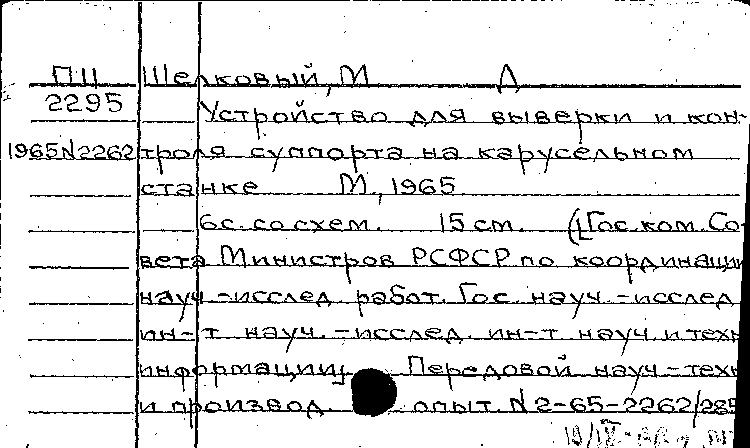 ПЦ Шелковый, М Д
2295 Устройство для выверки и кон-
1965 N2262 троля суппорта на карусельном
станке М., 1965
6 с. со схем. 15 см. ([Гос. ком. Со-
вета Министров РСФСР по координации
науч.-исслед. работ. Гос. науч.-исслед.
ин-т науч.-исслед. ин-т науч. и техн
информации] Передовой науч-техн
и производ. опыт. N2-65-2262/285